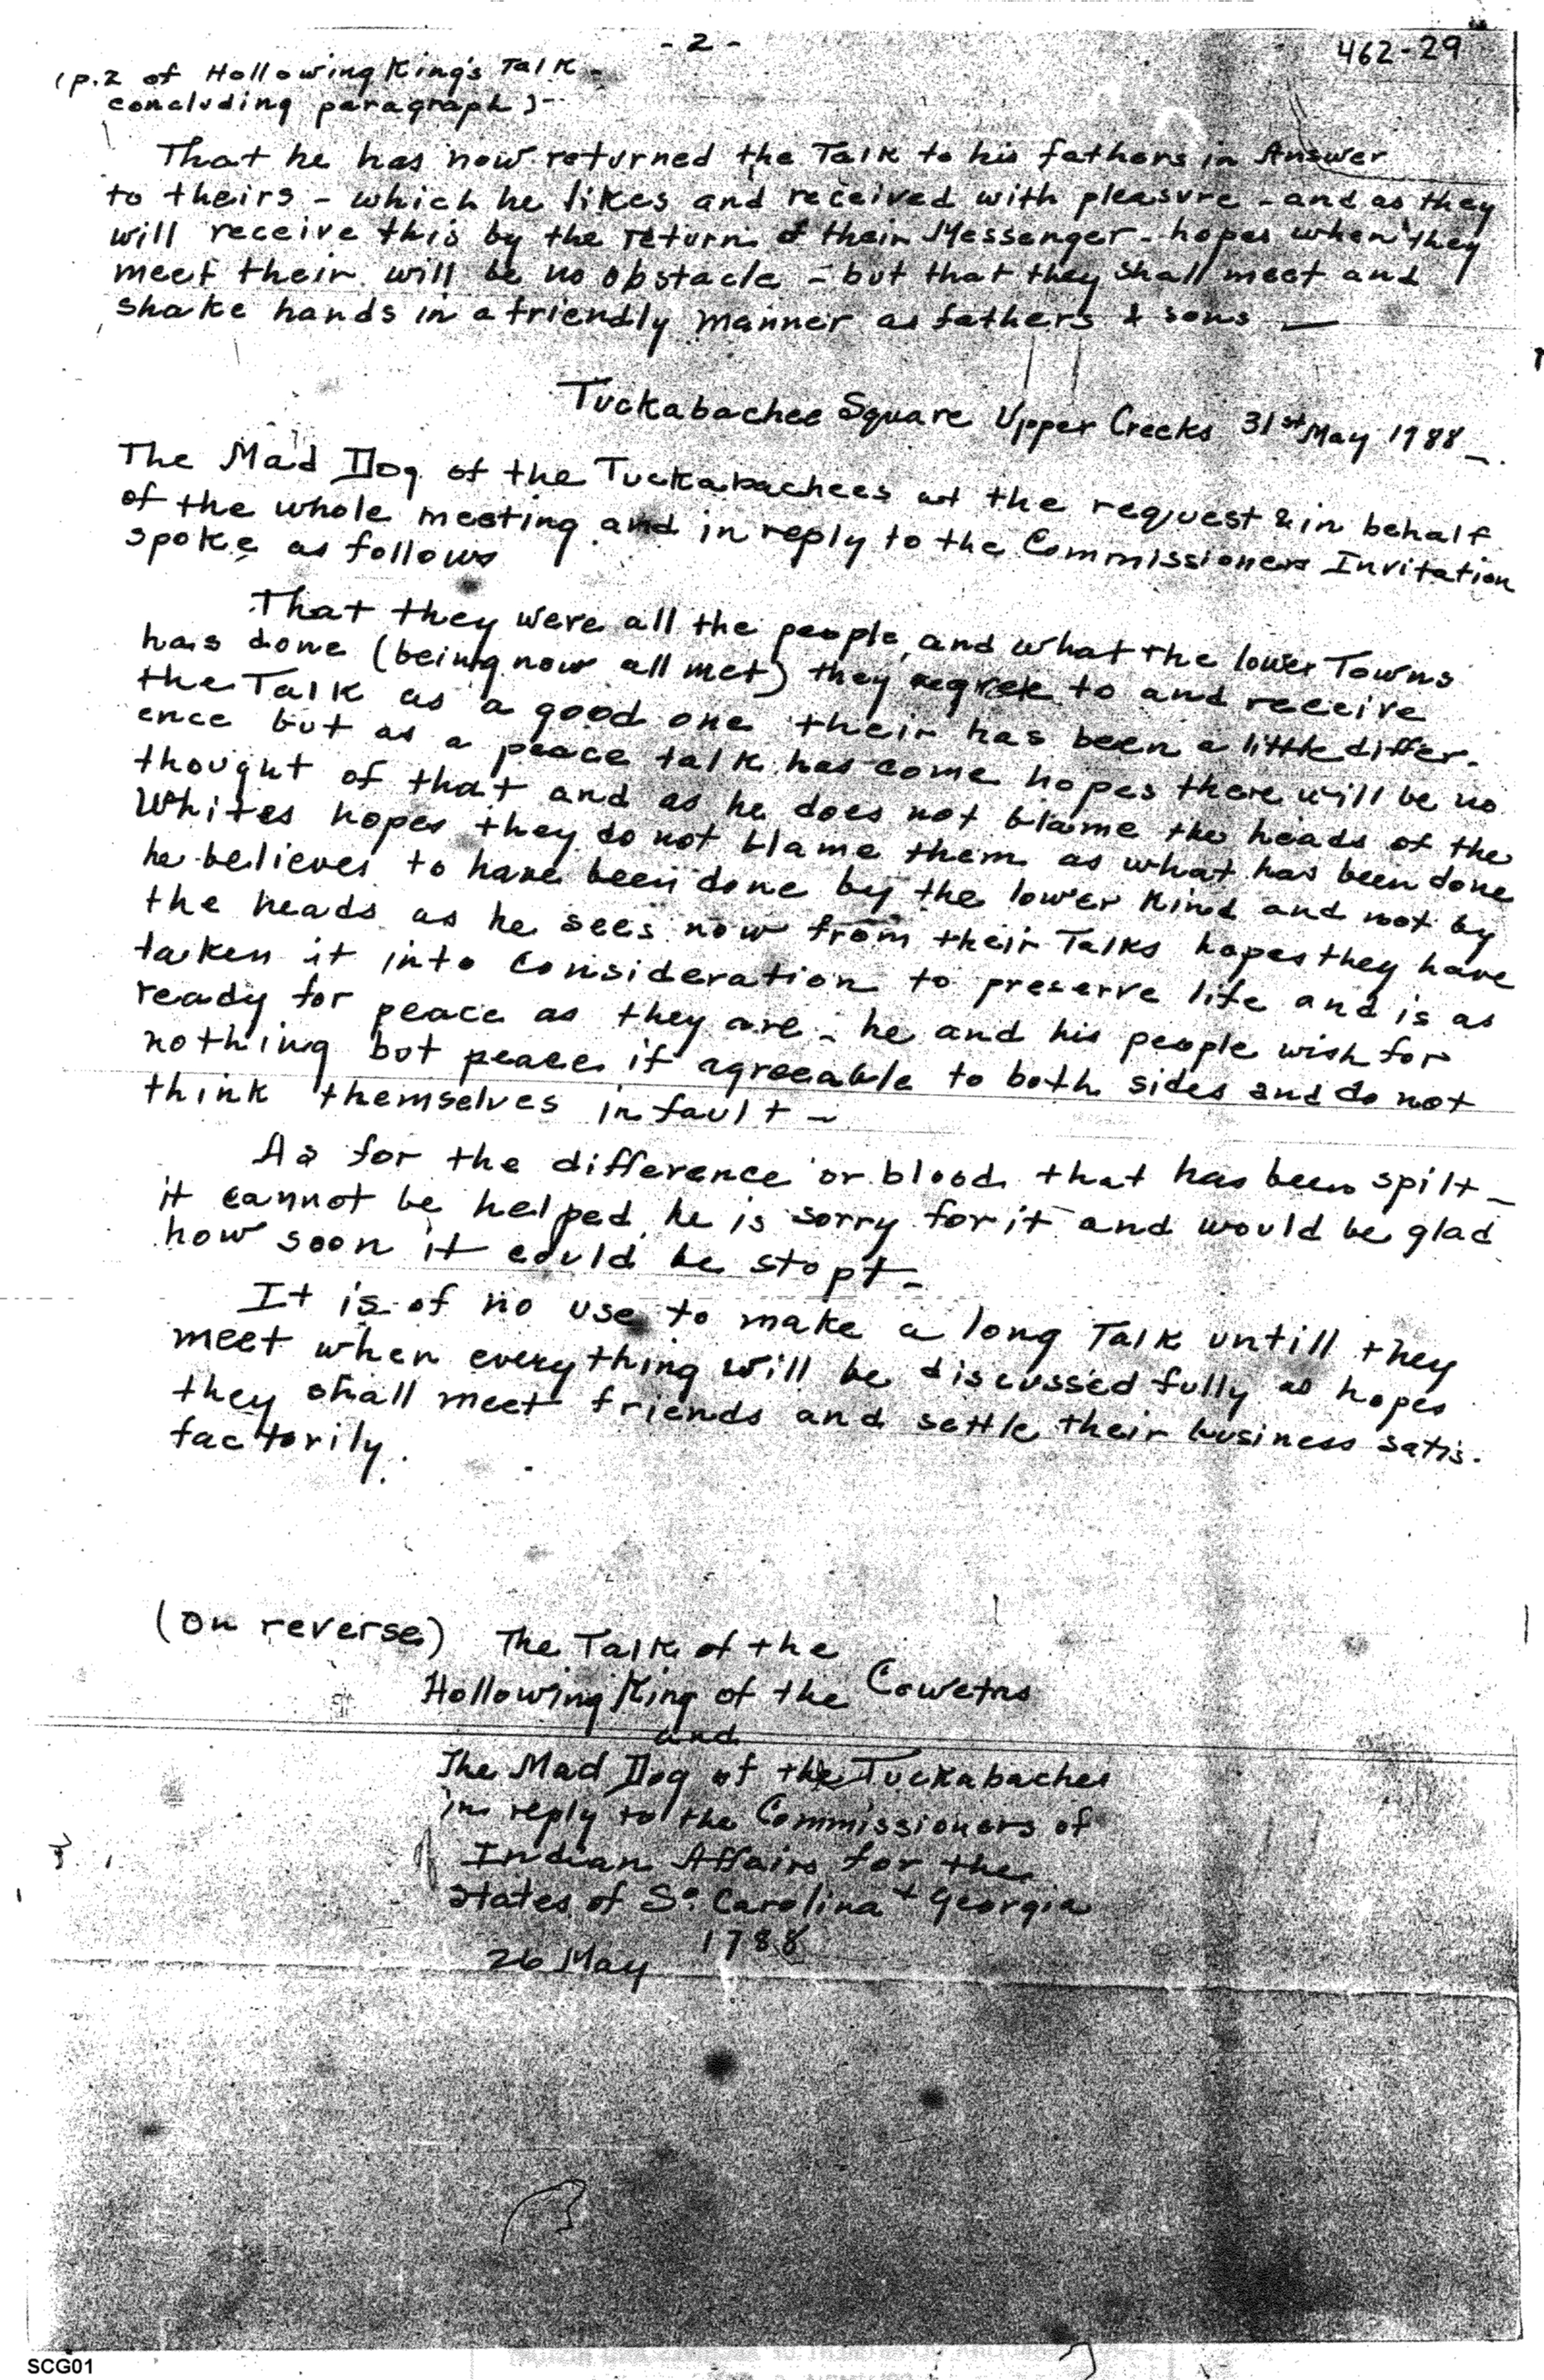 - 2 -
462-29
(p.2 of Hollowing King's Talk -
concluding paragraph) -
That he has now returned the Talk to his fathers in Answer
to theirs - which he likes and received with pleasure - and as they
will receive this by the return of their Messenger - hopes when they
meet their will be no obstacle - but that they shall meet and
shake hands in a friendly manner as fathers & sons —
Tuckabachee Square Upper Creeks 31st May 1788 -.
The Mad Dog of the Tuckabachees at the request & in behalf
of the whole meeting and in reply to the Commissioners Invitation
spoke as follows
That they were all the people, and what the lower Towns
has done (being now all met) they agree to and receive
the Talk as a good one their has been a little differ-
ence but as a peace talk has come hopes there will be no
thought of that and as he does not blame the heads of the
Whites hopes they do not blame them as what has been done
he believes to have been done by the lower kind and not by
the heads as he sees now from their Talks hopes they have
taken it into consideration to preserve life and is as
ready for peace as they are - he and his people wish for
nothing but peace if agreeable to both sides and do not
think themselves in fault -
As for the difference or blood that has been spilt -
it cannot be helped he is sorry for it and would be glad
how soon it could be stopt -
It is of no use to make a long Talk untill they
meet when everything will be discussed fully as hopes
they shall meet friends and settle their business satis-
factorily.
(On reverse) The Talk of the
Hollowing King of the Cowetas
and
The Mad Dog of the Tuckabaches
in reply to the Commissioners of
Indian Affairs for the
States of So. Carolina & Georgia
1788
26 May
SCG01